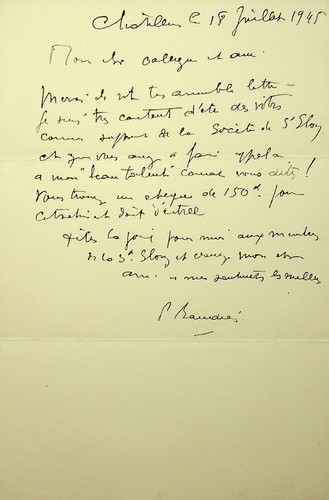 Châtillon le 18 Juillet 1945
Mon cher collègue et ami.
Merci de votre très aimable lettre
Je suis très content d'être des vôtres
comme support de la Société de St Eloy
et que vous ayez fait appel
à mon "beau talent" comme vous dites !
Vous trouverez un chèque de 150 pour
cotisation et droit d'entrée
dites la joie pour moi aux membres
de la St Eloy et croyez mon cher
ami à mes sentiments les meilleurs
P